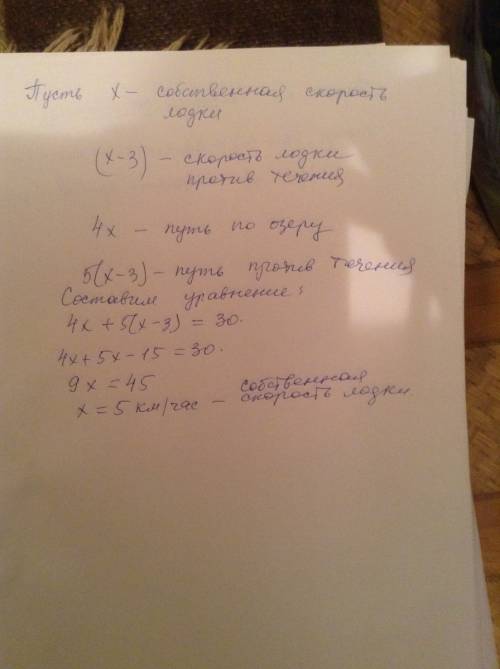 Пусть х – собственная скорость
лодки
(х-3) – скорость лодки
против течения
4х – путь по озеру
5(х-3) – путь против течения
Составим уравнение:
4х + 5(х-3) = 30.
4х+5х-15 = 30.
9х = 45
х = 5 км/час – собственная
скорость лодки